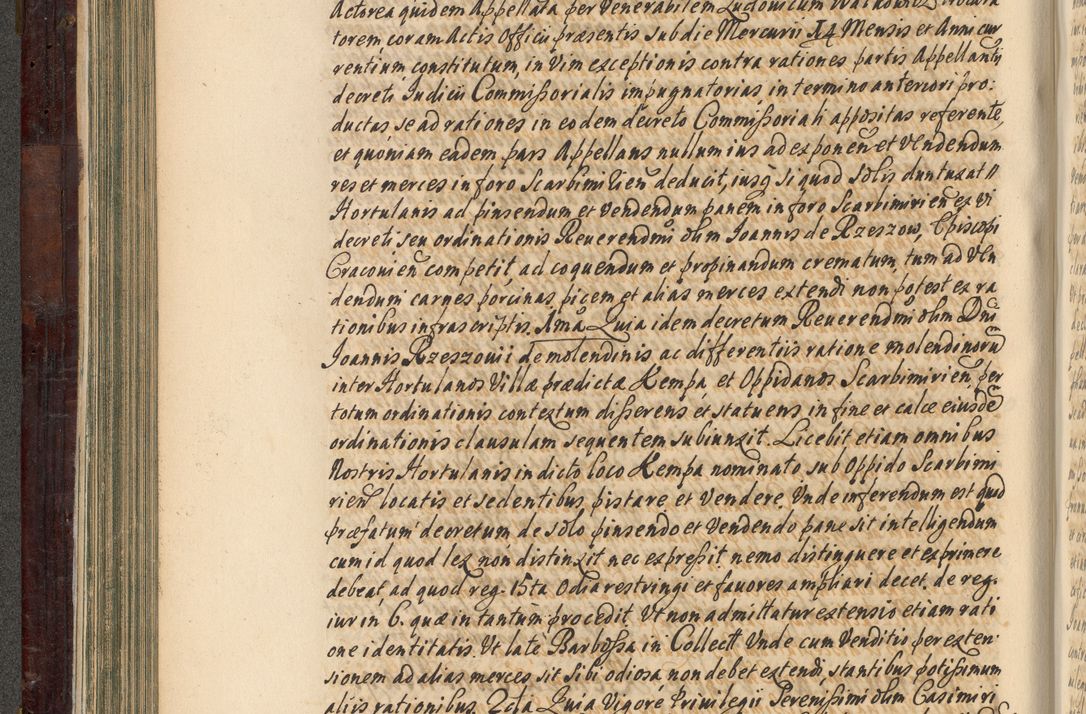 Actorea quidem Appellata per Venerabilem Ludovicum
torem, coram Actis Officii præsentis sub die Mercurii 14 Mensis et Anni cur
rentium constitutum, in vim exceptionis contra rationes partis Appellantis
decreti Iudicii Commissorialis impugnatorias in termino anteriori pro:
ductas se ad rationes in eodem decreto Commissoriali appositas referente,
et quoniam eadem pars Appellans nullum ius ad exponen̄ et Vendendum
res et merces in foro Scarbimirien̄ deducit, iusq̄ si quod solis duntaxat
Hortulanis ad pinsendum et vendendum panem in foro Scarbimirien̄ ex vi
decreti seu ordinationis Reuerendmi olim Ioannis de Rzeszow, Episcopi
Cracouien̄ competit, ad coquendum et propinandum crematum, tum ad Ven
dendum carnes porcinas picem et alias merces extendi non potest ex ra
tionibus infrascriptis. 1ma Quia idem decretum Reuerendmi olim Dni
Ioannis Rzeszouii de molendinis ac differentiis ratione molendinorū
inter Hortulanos Villæ prædictæ Kempa et Oppidanos Scarbimirien̄ per
totum ordinationis contextum disserens et statuens in fine et calce eiusdē
ordinationis clausulam sequentem subiunxit. Licebit etiam omnibus
Nostris Hortulanis in dicto loco Kempa nominato sub Oppido Scarbimi
rien̄ locatis et sedentibus pistare et Vendere. Unde inferendum est quod
præfatum decretum de solo pinsendo et Vendendo pane sit intelligendum
cum id quod lex non distinxit nec expressit nemo distinguere et exprimere
debeat, ad quod reg. 15ta Odia restringi et fauores ampliari decet. de reg.
iur in 6. quæ in tantum procedit, Ut non admittatur extensio etiam rati
one identitatis. Ut late Barbossa in Collectt Unde cum Venditio per exten:
sionem ad alias merces sit sibi odiosa, non debet extendi, stantibus potissimum
aliis rationibus. 2da Quia Vigore Priuilegii Serenissimi olim Casimiri